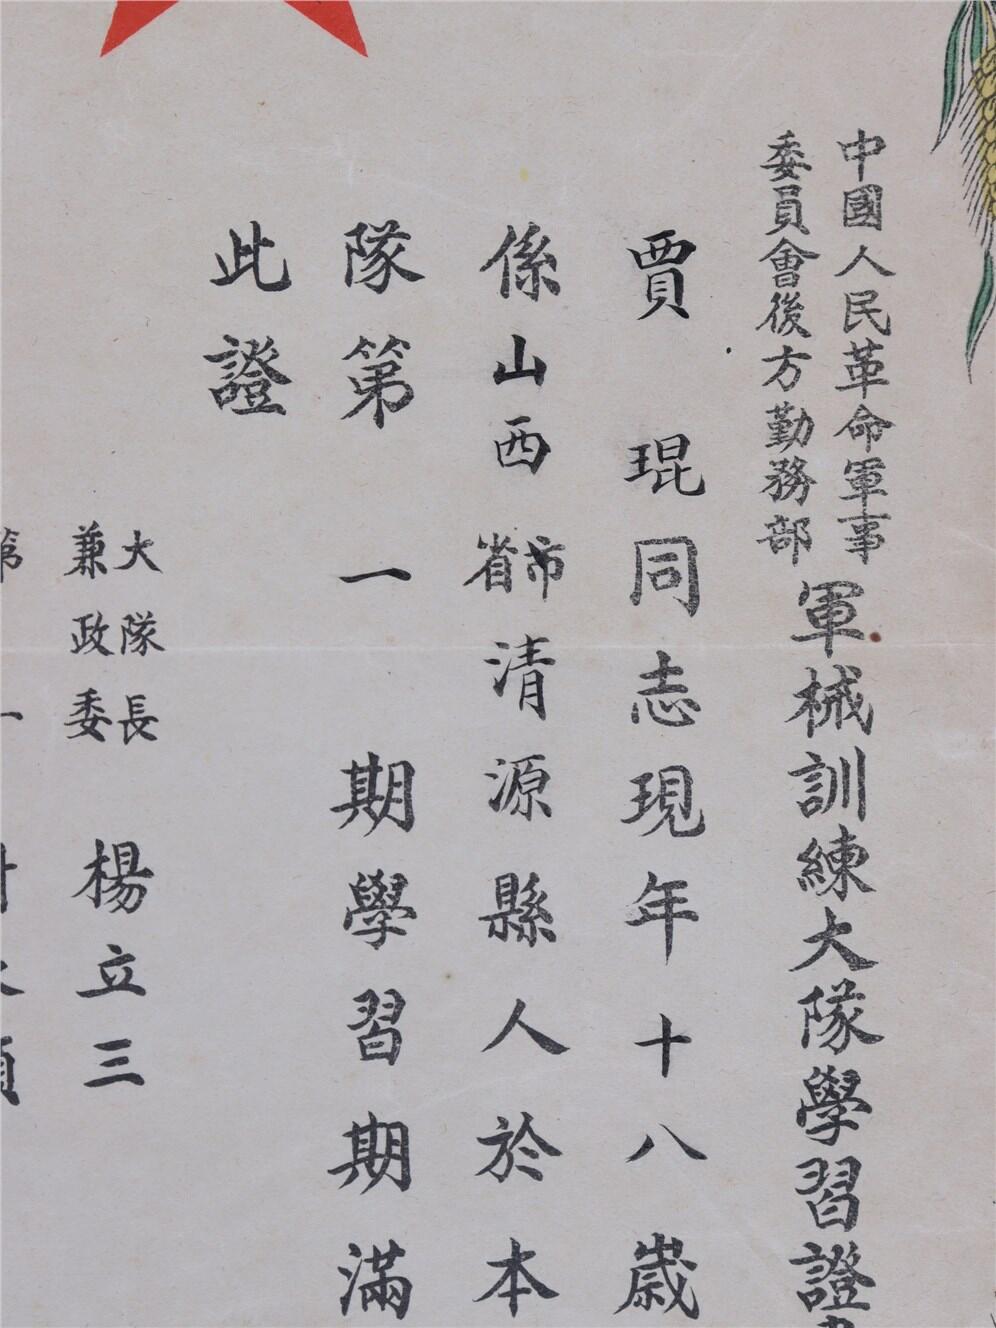 中國人民革命軍事
委員會後方勤務部
軍械訓練大隊學習證
賈琨同志現年十八歲
係山西市省清源縣人於本
隊第一期學習期滿
此證
大隊長
兼政委
楊立三
第一